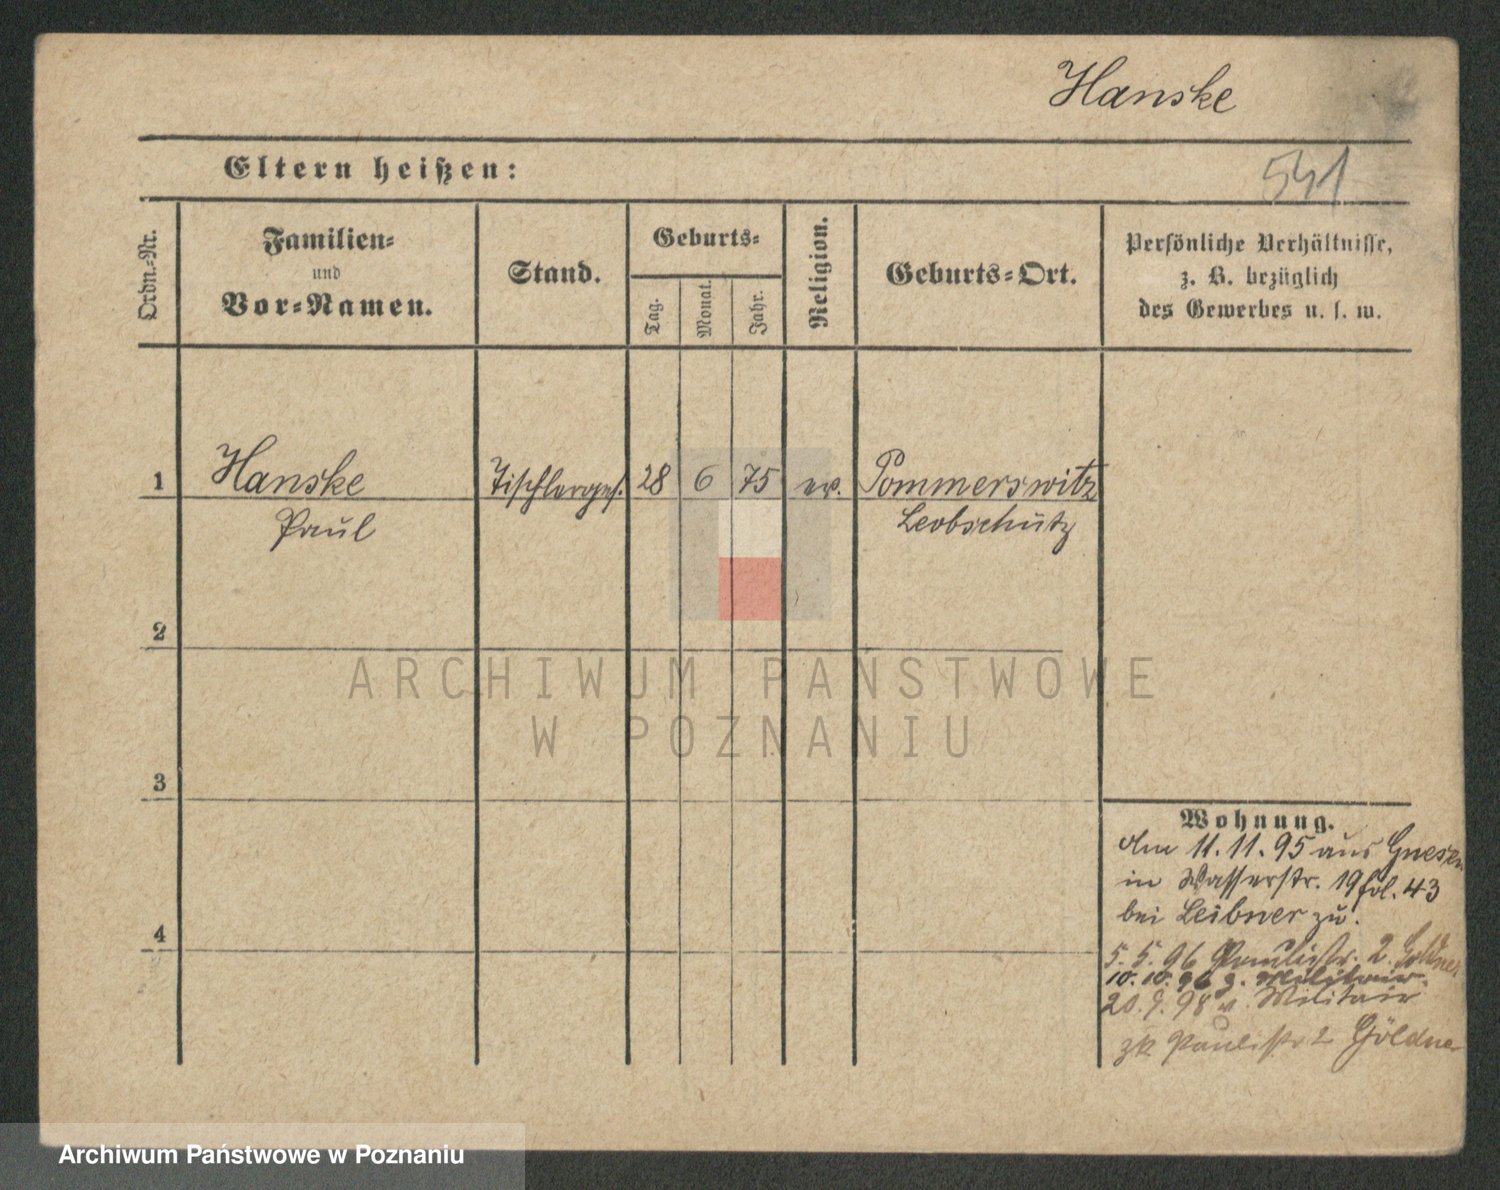 Hanske
Eltern heißen:
541
Ordn.-Nr.
Familien-
und
Vor-Namen.
Stand.
Geburts-
Tag.
Monat.
Jahr.
Religion.
Geburts-Ort.
Persönliche Verhältnisse,
z. B. bezüglich
des Gewerbes u. s. w.
1 Hanske Tischlerges. 28 6 75 ev. Pommerswitz
Paul Leobschütz
2
3
4
Wohnung.
Am 11. 11. 95 aus Gnesen
in Wasserstr. 19 fol. 43
bei Leibner zu.
5. 5. 96 Paulistr. 2. Goldner
10. 10. 96 z. Militair.
20. 9. 98 v. Militair
zk Paulistr 2 Göldner
ARCHIWUM PAŃSTWOWE
W POZNANIU
Archiwum Państwowe w Poznaniu